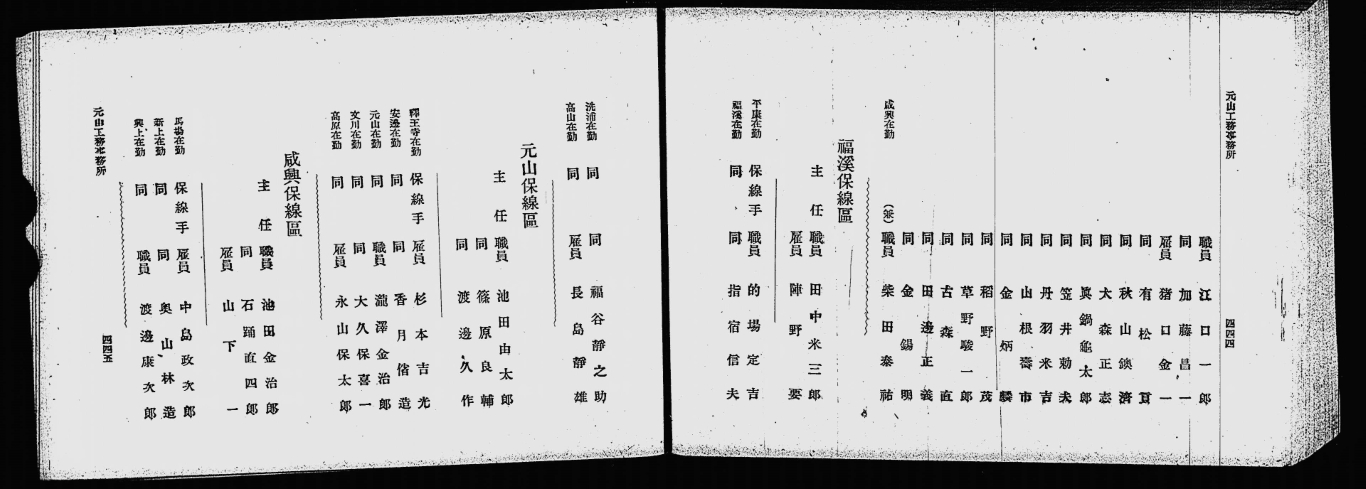 元山工務事務所
四四四
職員 江口一郎
同 加藤昌一
雇員 猪口金一
同 有松 貢
同 秋山鐐濟
同 大森正志
同 眞鍋龜太郎
同 笠井勋夫
同 丹羽米吉
同 山根壽市
同 金炳麟
同 稻野 茂
同 草野駿一郎
同 古森 直
同 田邊正義
同 金錫明
咸興在勤 (兼) 職員 柴田泰祐
福溪保線區
主任 職員 田中米三郎
雇員 陣野 要
平康在勤 保線手 職員 的場定吉
福溪在勤 同 同 指宿信夫
洗浦在勤 同 同 福谷靜之助
高山在勤 同 雇員 長島靜雄
元山保線區
主任 職員 池田由太郎
同 篠原良輔
同 渡邊久作
釋王寺在勤 保線手 雇員 杉本吉光
安邊在勤 同 同 香月偕造
元山在勤 同 職員 瀧澤金治郎
文川在勤 同 同 大久保喜一
高原在勤 同 雇員 永山保太郎
咸興保線區
主任 職員 池田金治郎
同 石踊直四郎
雇員 山下 一
馬場在勤 保線手 雇員 中島政次郎
新上在勤 同 同 奥山林造
興上在勤 同 職員 渡邊康次郎
元山工務事務所
四四五